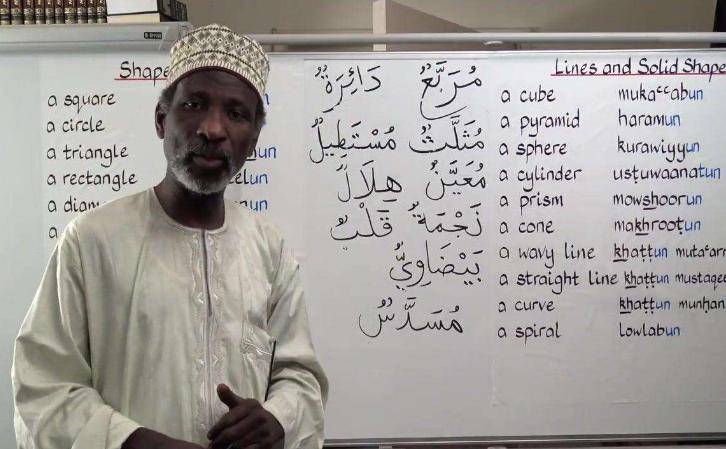 Shape
a square
a circle
a triangle
a rectangle
un
un
مُرَبَّعٌ دَائِرَةٌ
مُثَلَّثٌ مُسْتَطِيلٌ
مُعَيَّنٌ هِلَالٌ
نَجْمَةٌ قَلْبٌ
بَيْضَاوِيٌّ
مُسَدَّسٌ
Lines and Solid Shape
a cube mukaᶜᶜabun
a pyramid haramun
a sphere kurawiyyun
a cylinder usṭuwaanatun
a prism mowshoorun
a cone makhrooṭun
a wavy line khaṭṭun mutaᶜarr
a straight line khaṭṭun mustaqee
a curve khaṭṭun munḥan
a spiral Lowlabun